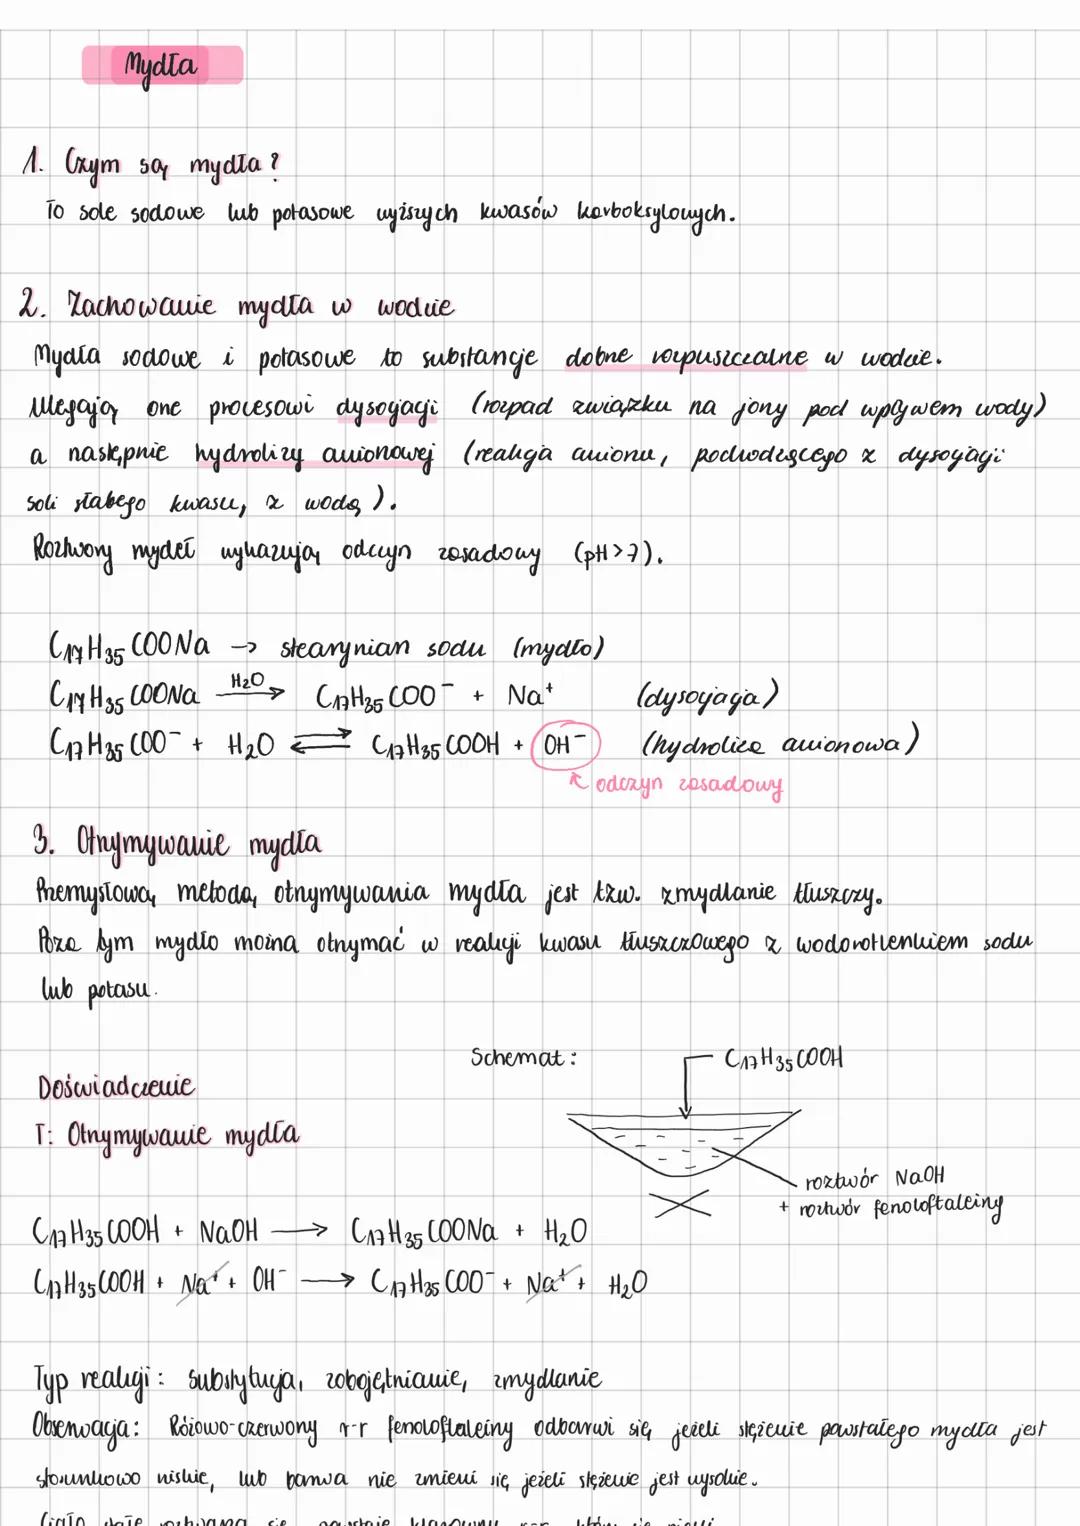 Mydła
1. Czym są mydła?
To sole sodowe lub potasowe wyższych kwasów karboksylowych.
2. Zachowanie mydła w wodzie
Mydła sodowe i potasowe to substancje dobrze rozpuszczalne w wodzie.
Ulegają one procesowi dysocjacji (rozpad związku na jony pod wpływem wody)
a następnie hydrolizy anionowej (reakcja anionu, pochodzącego z dysocjacji
soli słabego kwasu, z wodą).
Roztwory mydeł wykazują odczyn zasadowy (pH>7).
C₁₇H₃₅COONa → stearynian sodu (mydło)
C₁₇H₃₅COONa —H₂O→ C₁₇H₃₅COO⁻ + Na⁺ (dysocjacja)
C₁₇H₃₅COO⁻ + H₂O ⇄ C₁₇H₃₅COOH + OH⁻ (hydroliza anionowa)
↖ odczyn zasadowy
3. Otrzymywanie mydła
Przemysłową metodą otrzymywania mydła jest tzw. zmydlanie tłuszczy.
Poza tym mydło można otrzymać w reakcji kwasu tłuszczowego z wodorotlenkiem sodu
lub potasu.
Schemat:
C₁₇H₃₅COOH
Doświadczenie
T: Otrzymywanie mydła
roztwór NaOH
+ roztwór fenoloftaleiny
C₁₇H₃₅COOH + NaOH → C₁₇H₃₅COONa + H₂O
C₁₇H₃₅COOH + Na⁺ + OH⁻ → C₁₇H₃₅COO⁻ + Na⁺ + H₂O
Typ reakcji: substytucja, zobojętnianie, zmydlanie
Obserwacja: Różowo-czerwony r-r fenoloftaleiny odbarwi się, jeżeli stężenie powstałego mydła jest
stosunkowo niskie, lub barwa nie zmieni się jeżeli stężenie jest wysokie.
Ciało stałe roztwarza się